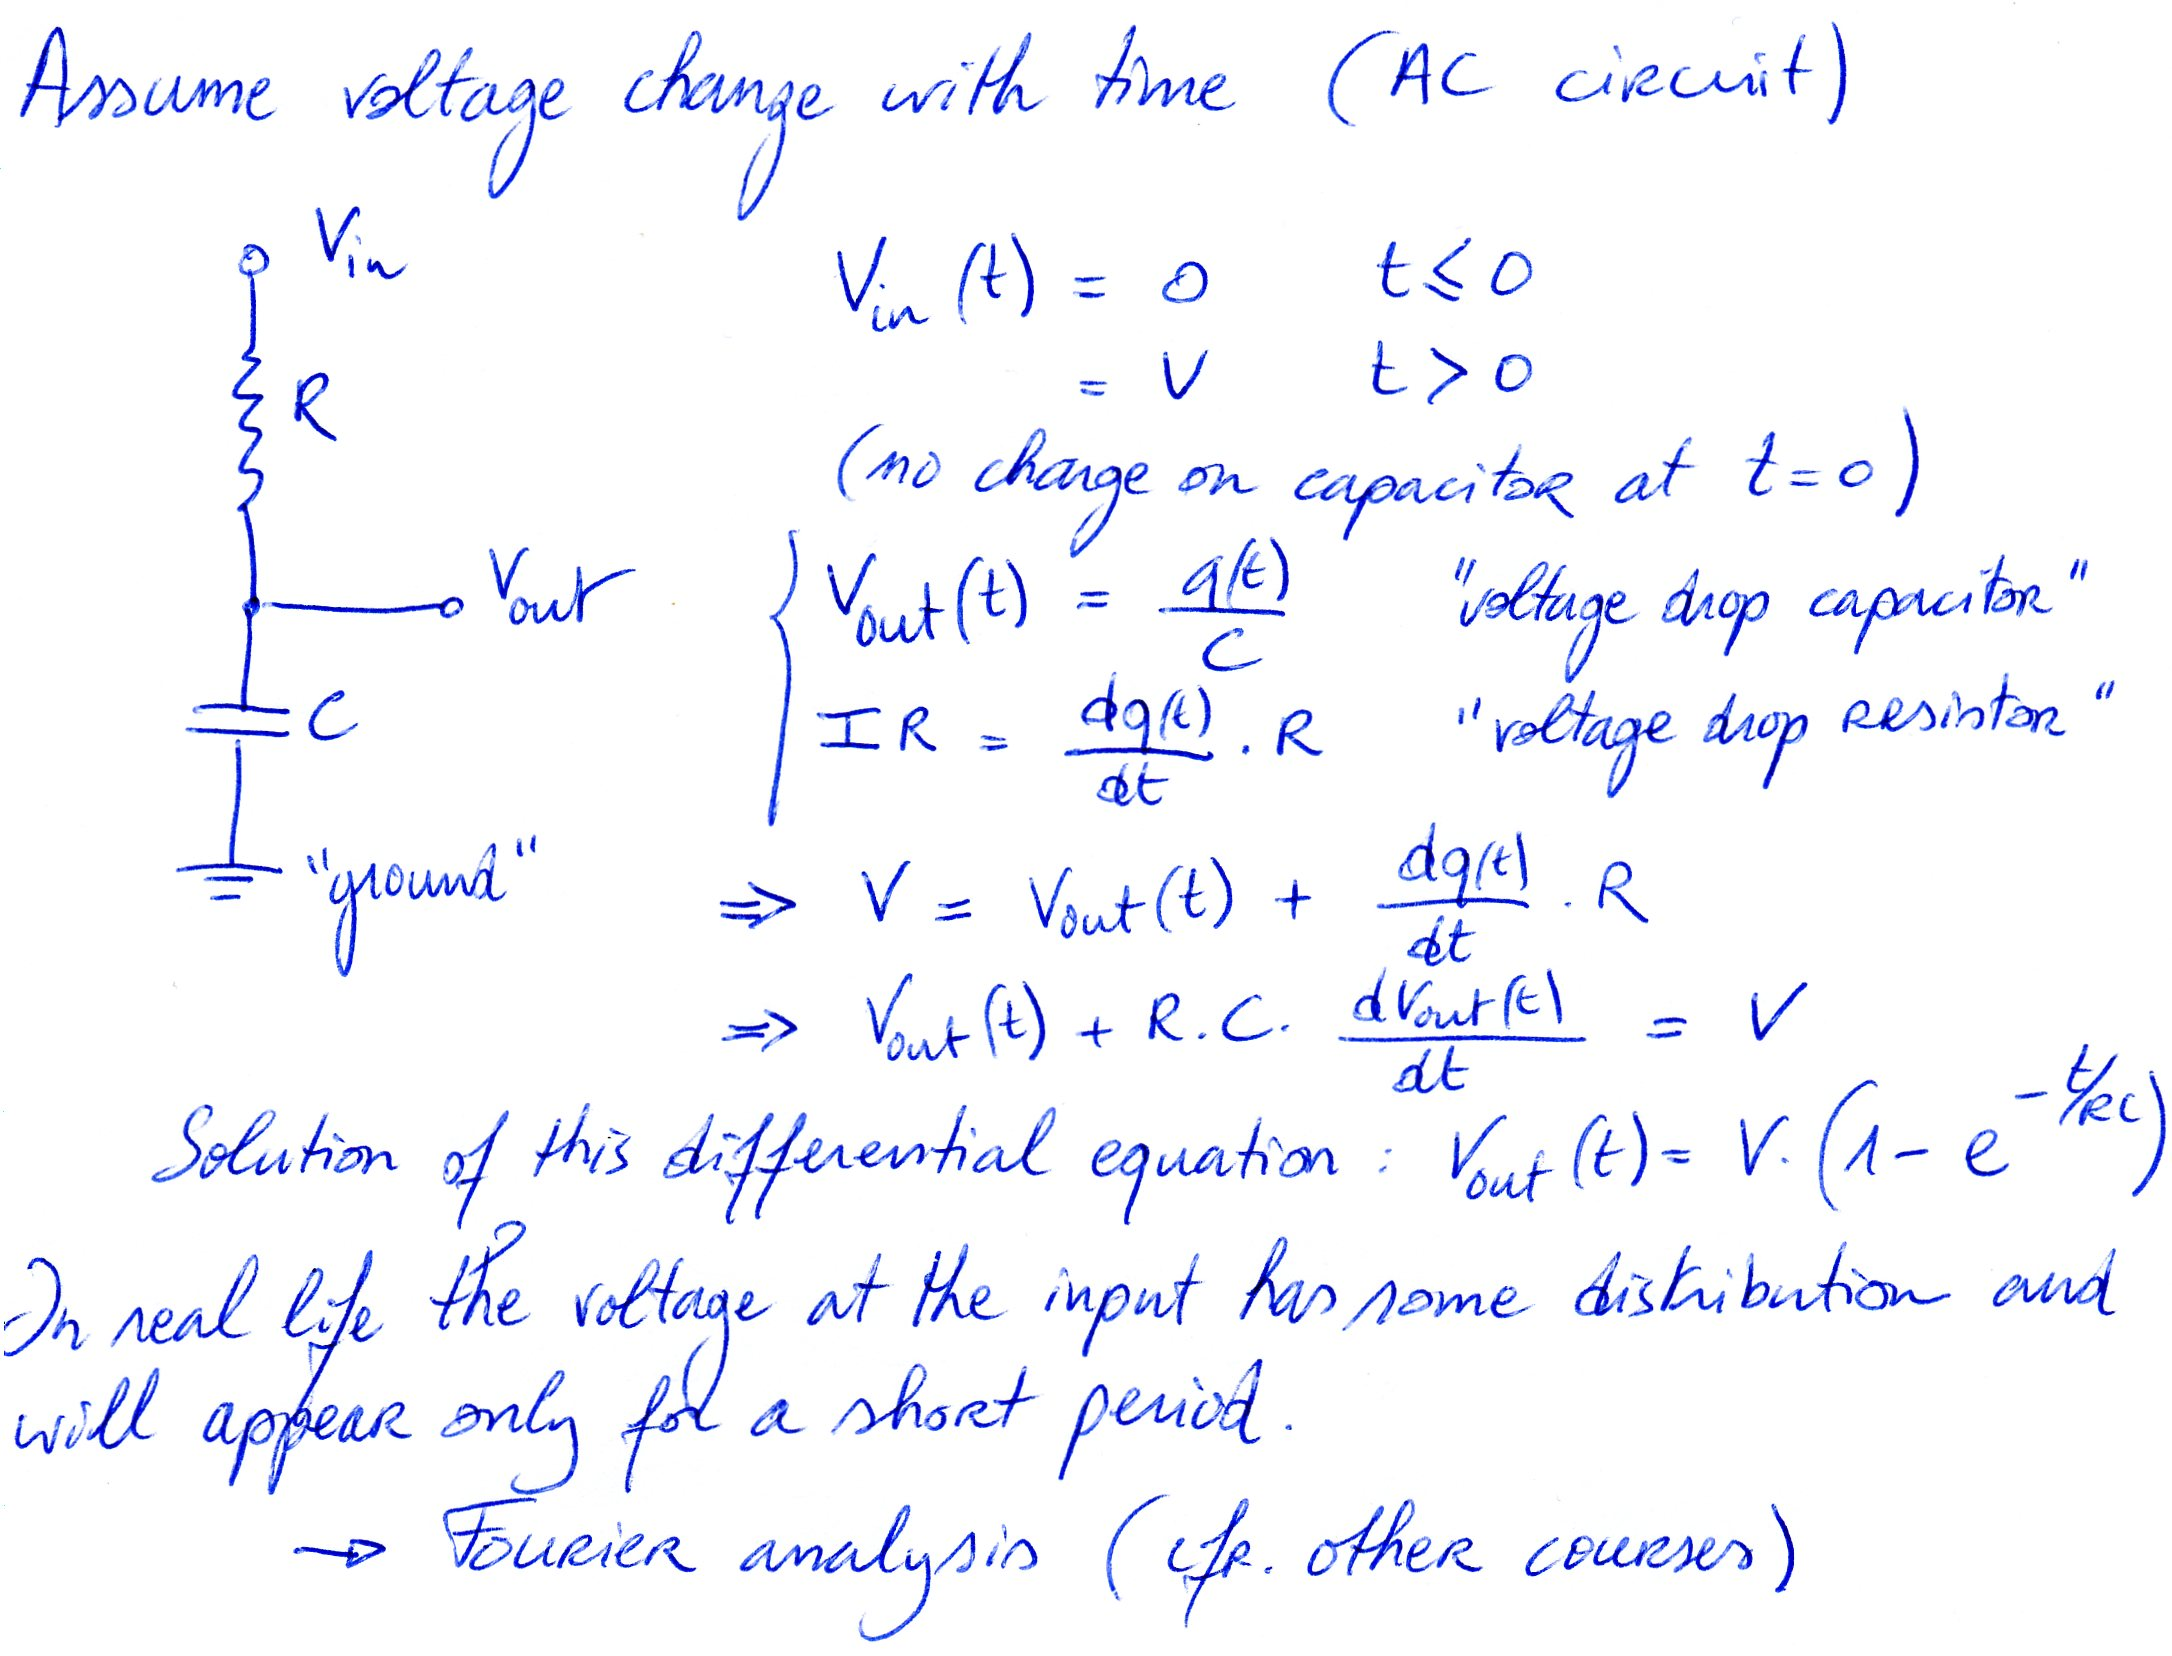 Assume voltage change with time (AC circuit)
Vin
Vin (t) = 0 t ≤ 0
= V t > 0
R
(no charge on capacitor at t=0)
Vout
Vout(t) = q(t)/C "voltage drop capacitor"
C
IR = dq(t)/dt . R "voltage drop resistor"
"ground"
⇒ V = Vout(t) + dq(t)/dt . R
⇒ Vout(t) + R.C. dVout(t)/dt = V
Solution of this differential equation : Vout(t) = V. (1 - e^(-t/RC))
In real life the voltage at the input has some distribution and
will appear only for a short period.
→ Fourier analysis (cfr. other courses)